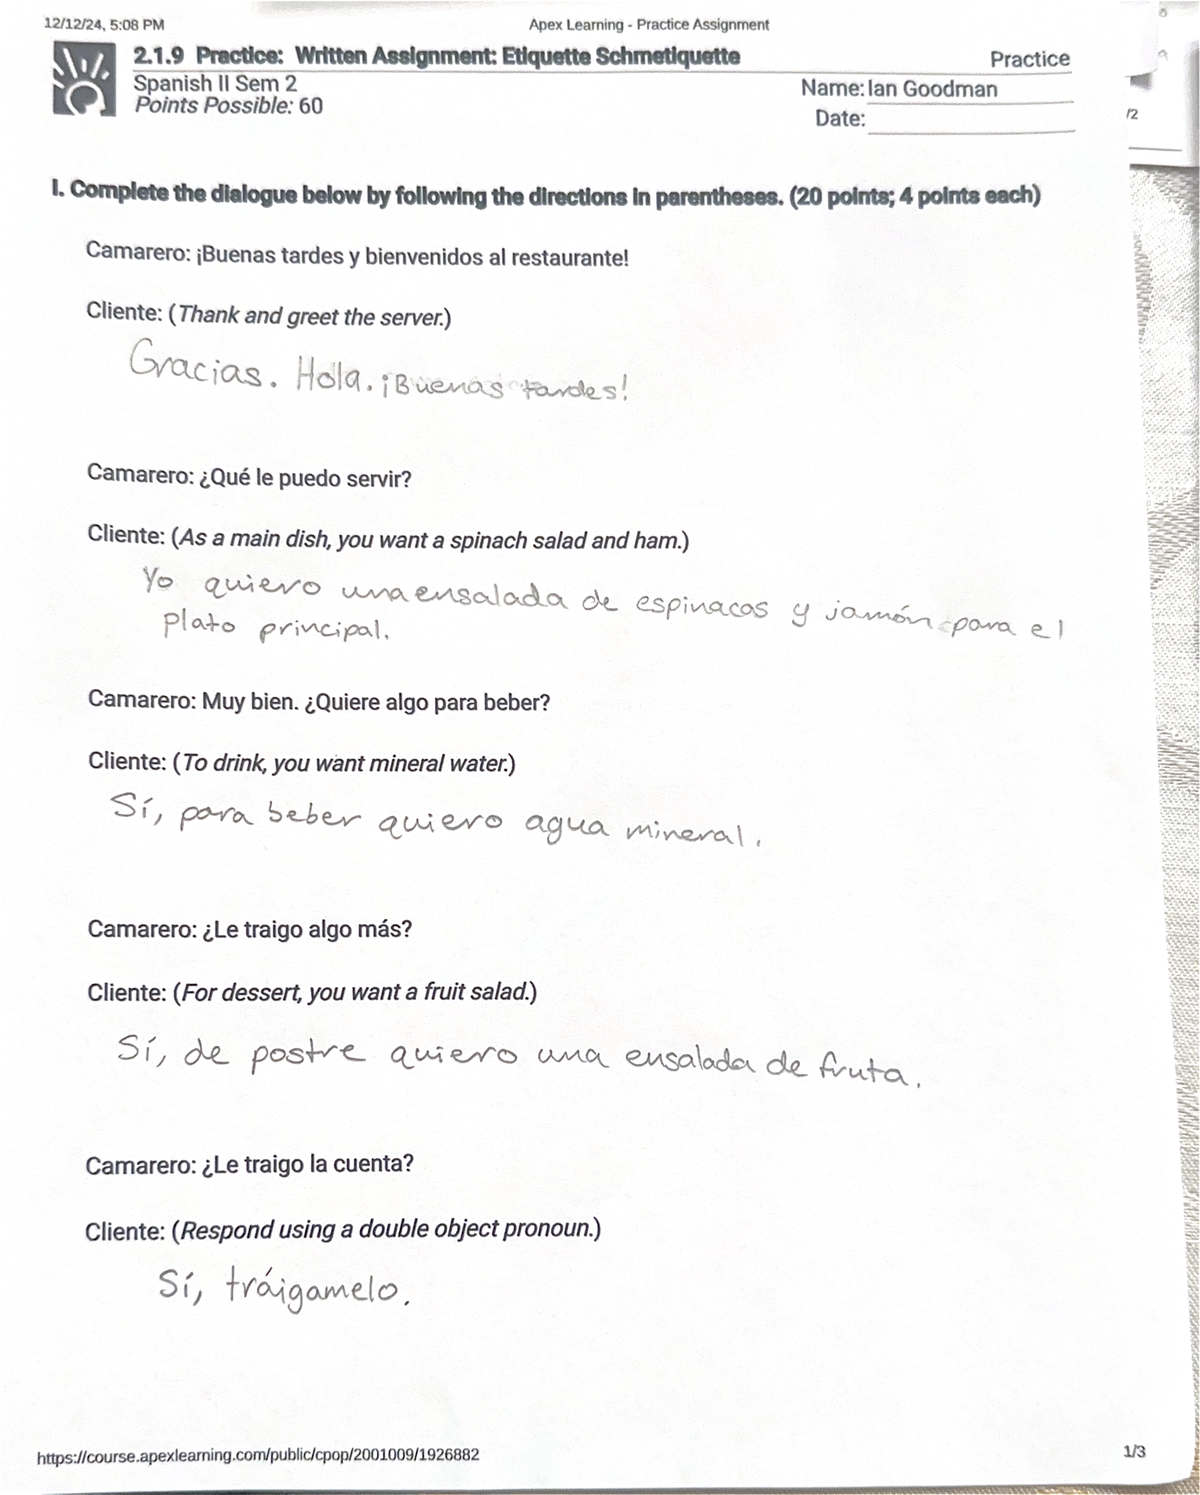 12/12/24, 5:08 PM Apex Learning - Practice Assignment
2.1.9 Practice: Written Assignment: Etiquette Schmetiquette Practice
Spanish II Sem 2
Name: Ian Goodman
Points Possible: 60
Date:
/2
I. Complete the dialogue below by following the directions in parentheses. (20 points; 4 points each)
Camarero: ¡Buenas tardes y bienvenidos al restaurante!
Cliente: (Thank and greet the server.)
Gracias. Hola. ¡Buenas tardes!
Camarero: ¿Qué le puedo servir?
Cliente: (As a main dish, you want a spinach salad and ham.)
Yo quiero una ensalada de espinacas y jamón para el
plato principal.
Camarero: Muy bien. ¿Quiere algo para beber?
Cliente: (To drink, you want mineral water.)
Sí, para beber quiero agua mineral.
Camarero: ¿Le traigo algo más?
Cliente: (For dessert, you want a fruit salad.)
Sí, de postre quiero una ensalada de fruta.
Camarero: ¿Le traigo la cuenta?
Cliente: (Respond using a double object pronoun.)
Sí, tráigamelo.
https://course.apexlearning.com/public/cpop/2001009/1926882 1/3